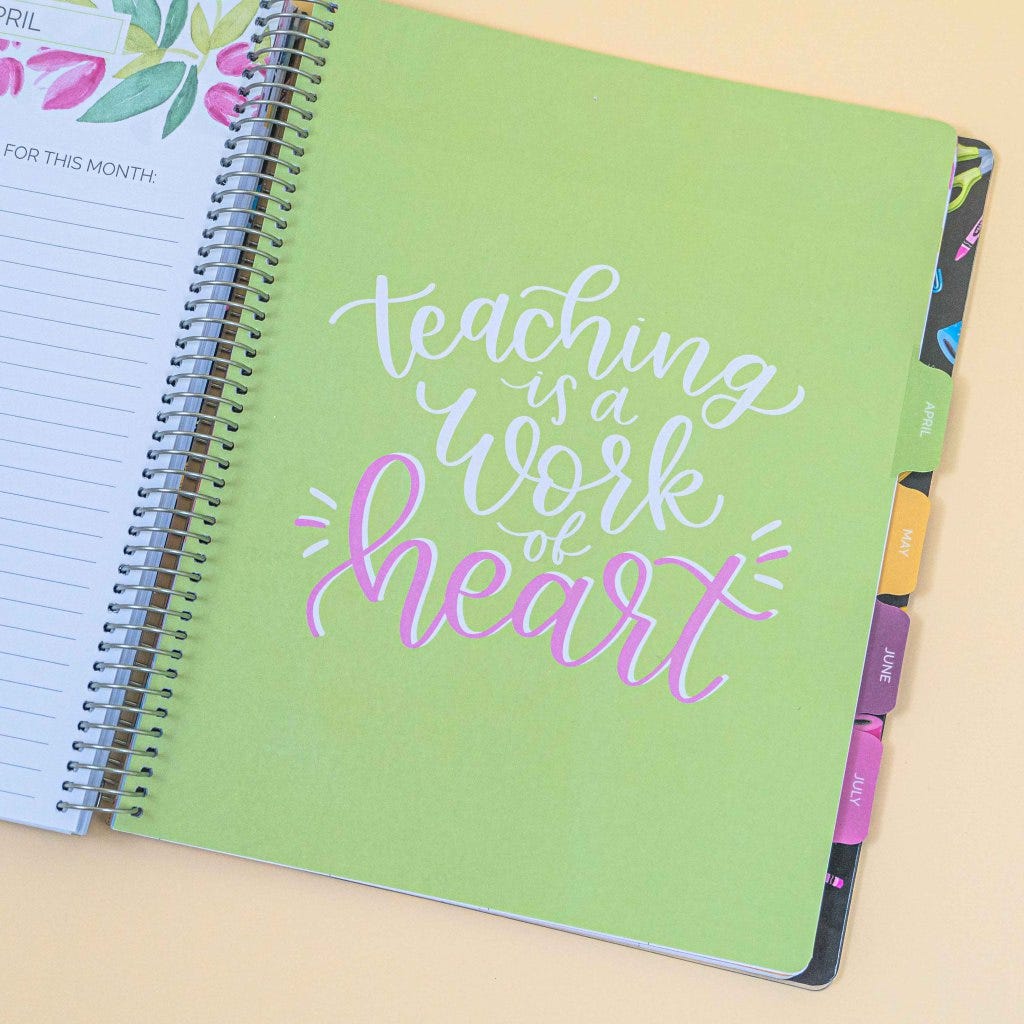 FOR THIS MONTH:
teaching
is a
work
of
heart
APRIL
MAY
JUNE
JULY